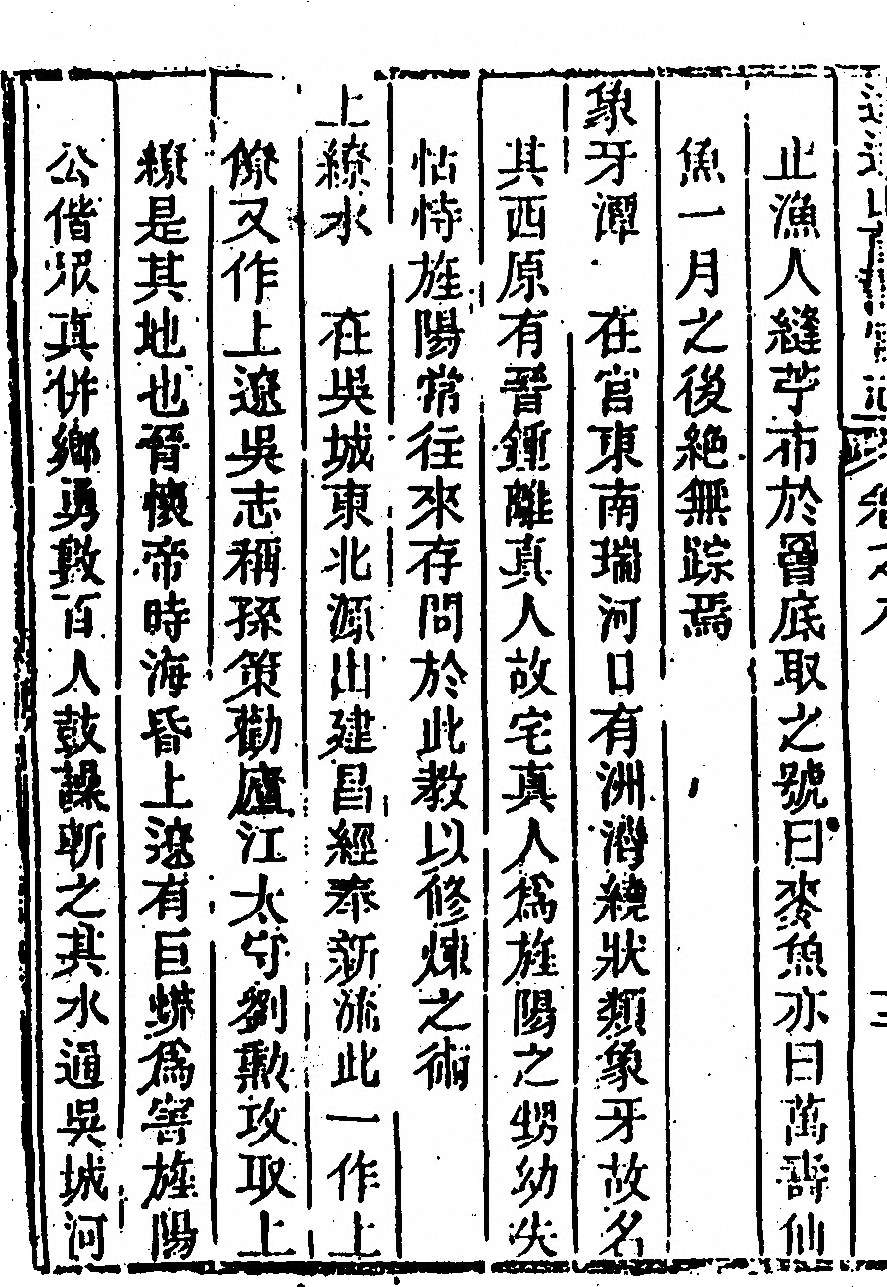 止漁人縫苧布於罾底取之號曰麥魚亦曰萬壽仙
魚一月之後絕無踪焉
象牙潭 在宮東南瑞河口有洲灣繞狀類象牙故名
其西原有晉鍾離真人故宅真人爲旌陽之甥幼失
怙恃旌陽常往來存問於此教以修煉之術
上繚水 在吳城東北源出建昌經奉新流此一作上
僚又作上遼吳志稱孫策勸廬江太守劉勳攻取上
繚是其地也晉懷帝時海昏上遼有巨蟒爲害旌陽
公偕眾真併鄉勇數百人鼓譟斬之其水通吳城河